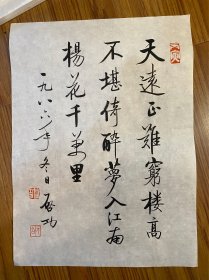 天遠正難窮楼高
不堪倚醉夢入江南
楊花千万里
一九八六年冬日啟功